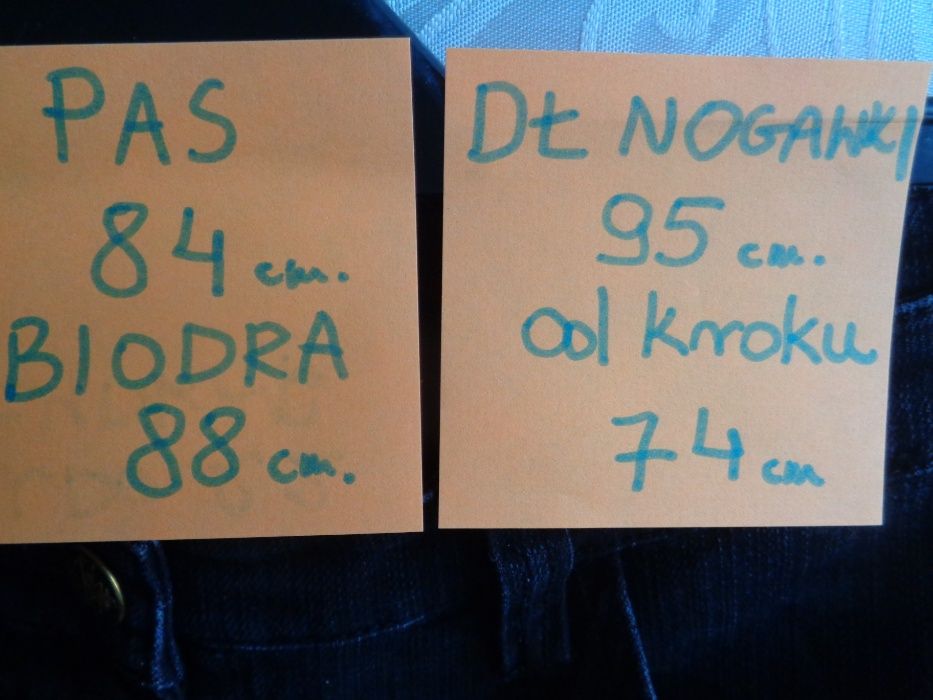 PAS
84 cm.
BIODRA
88 cm.
DŁ NOGAWKI
95 cm.
od kroku
74 cm